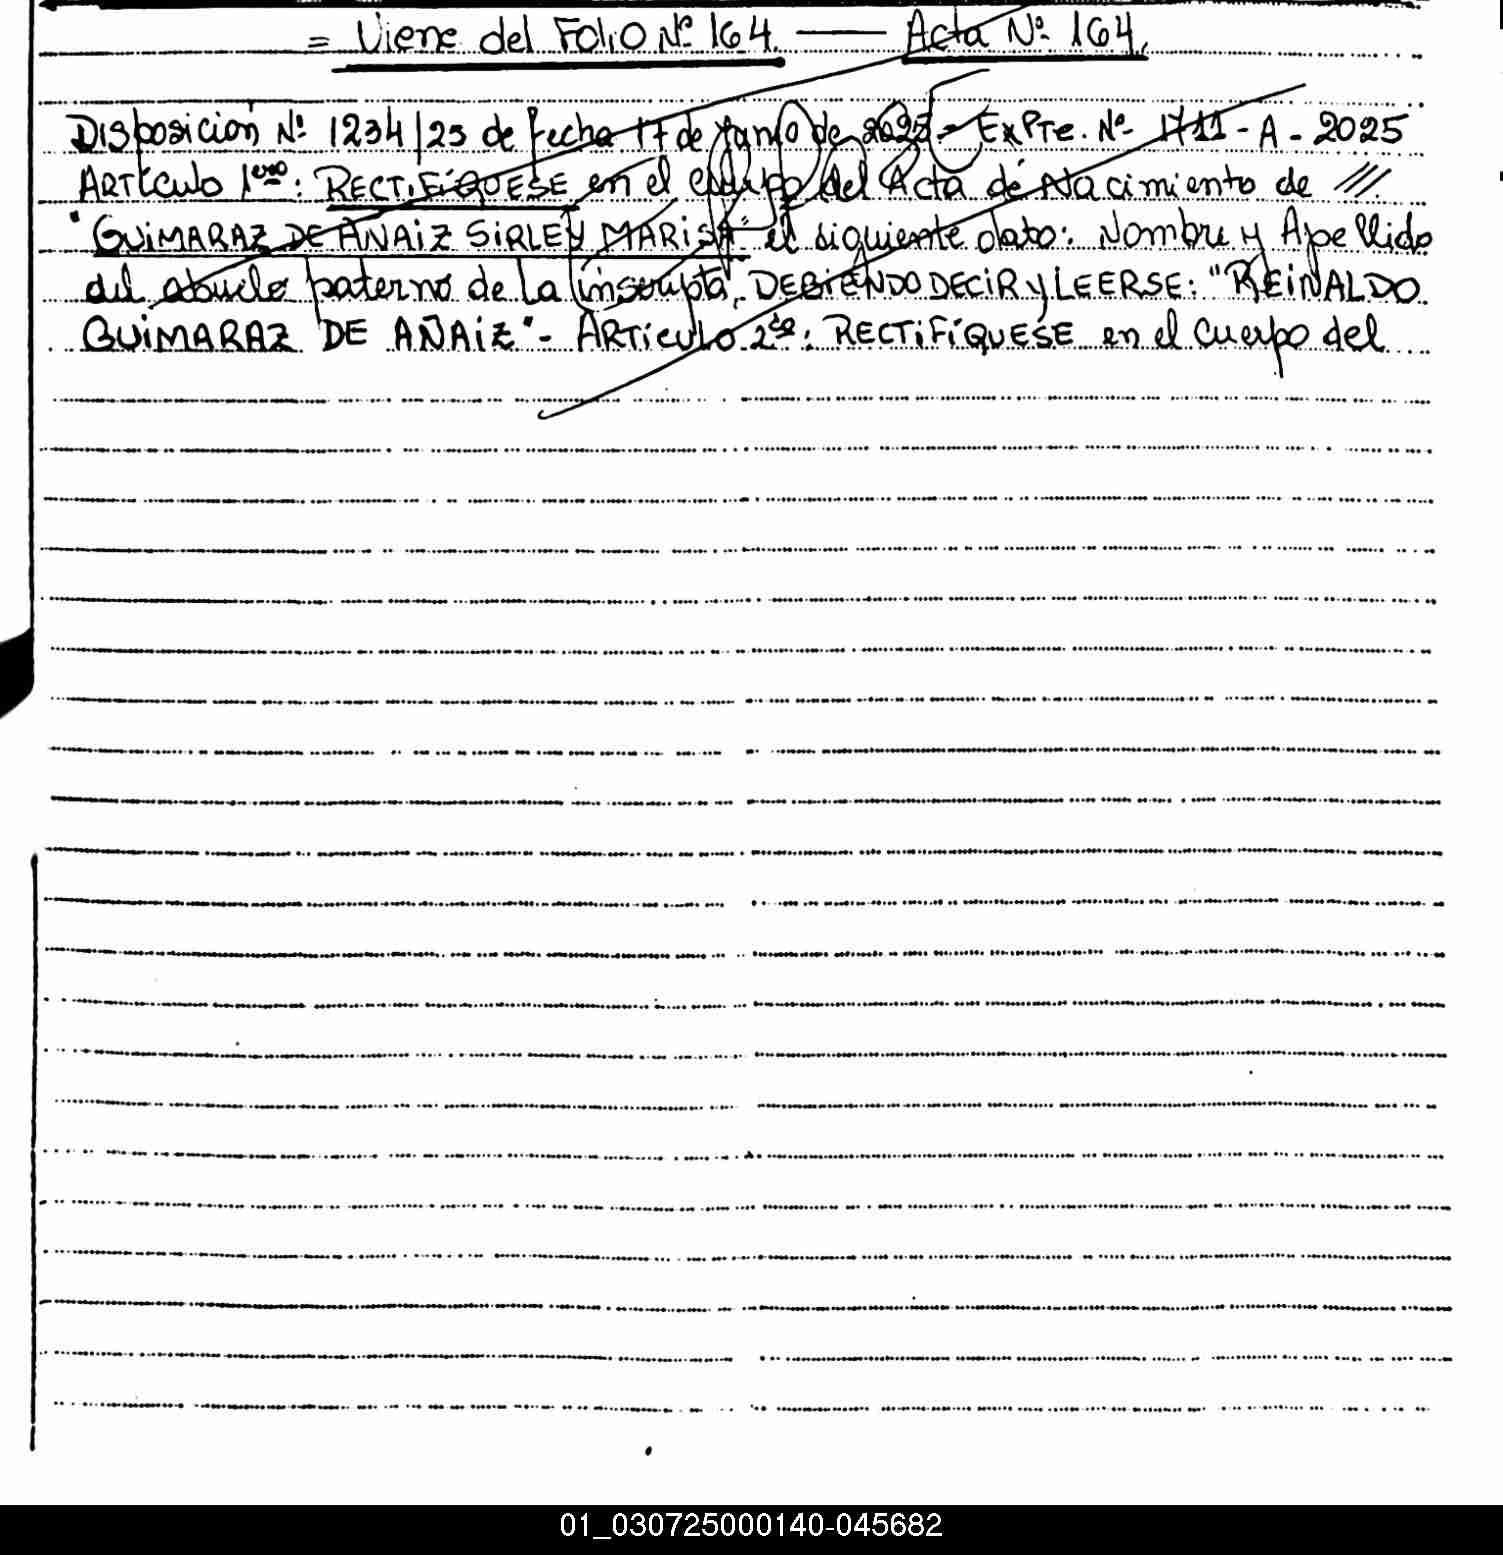 = Viene del Folio Nº 164. — Acta Nº 164.
Disposición Nº 1234/25 de fecha 17 de Junio de 2025 - Expte. Nº 1711 - A - 2025
Artículo 1ero: RECTIFÍQUESE en el cuerpo del Acta de Nacimiento de ///.
"GUIMARAZ DE ANAIZ SIRLEY MARISA" el siguiente dato: Nombre y Apellido
del abuelo paterno de la inscripta, DEBIENDO DECIR y LEERSE: "REINALDO
GUIMARAZ DE AÑAIZ"- Artículo 2do: RECTIFÍQUESE en el Cuerpo del
01_030725000140-045682